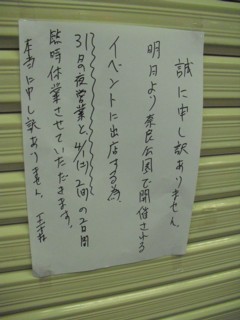 誠に申し訳ありません
明日より奈良公園で開催される
イベントに出店する為
31日の夜営業と4/1(土)2(日)の2日間
臨時休業させていただきます。
本当に申し訳ありません。